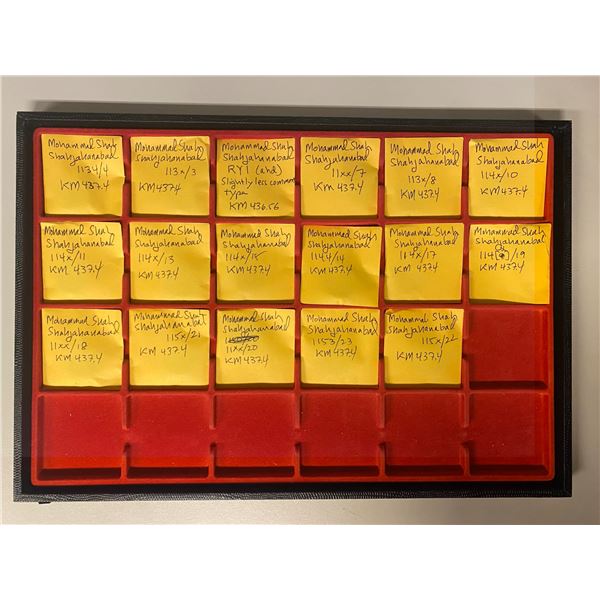 Mohammad Shah
Shahjahanabad
1134/4
KM 437.4
Mohammad Shah
Shahjahanabad
113x/3
KM 437.4
Mohammad Shah
Shahjahanabad
RY1 (ahd)
Slightly less common
type
KM 436.56
Mohammad Shah
Shahjahanabad
11xx/7
KM 437.4
Mohammad Shah
Shahjahanabad
113x/8
KM 437.4
Mohammad Shah
Shahjahanabad
114x/10
KM 437.4
Mohammad Shah
Shahjahanabad
114x/11
KM 437.4
Mohammad Shah
Shahjahanabad
114x/13
KM 437.4
Mohammad Shah
Shahjahanabad
114x/15
KM 437.4
Mohammad Shah
Shahjahanabad
1144/14
KM 437.4
Mohammad Shah
Shahjahanabad
114x/17
KM 437.4
Mohammad Shah
Shahjahanabad
114[9]/19
KM 437.4
Mohammad Shah
Shahjahanabad
11xx/18
KM 437.4
Mohammad Shah
Shahjahanabad
115x/21
KM 437.4
Mohammad Shah
Shahjahanabad
11xx/20
KM 437.4
Mohammad Shah
Shahjahanabad
1153/23
KM 437.4
Mohammad Shah
Shahjahanabad
115x/22
KM 437.4